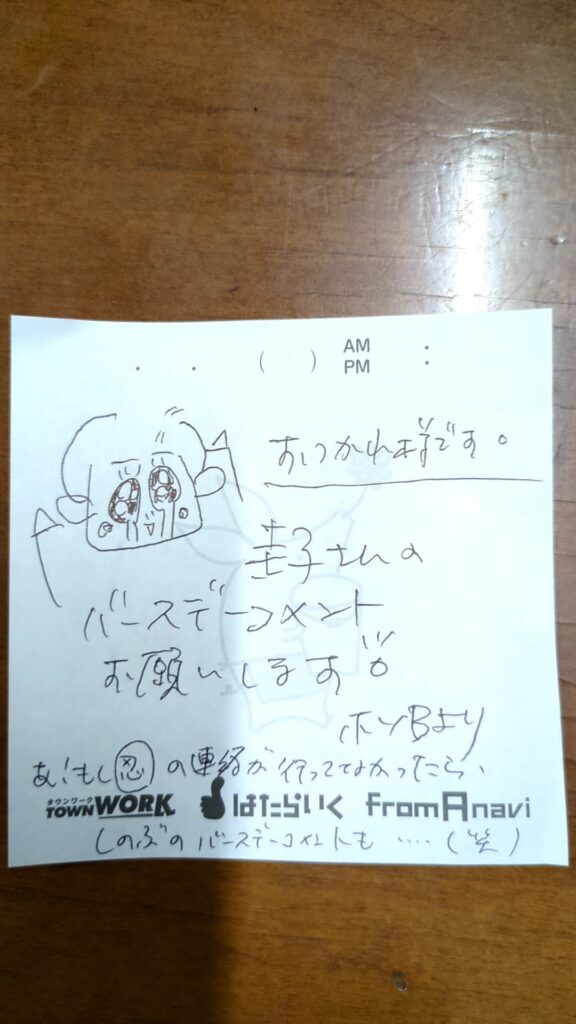 . . ( ) AM PM :
おつかれ様です。
圭子さんの
バースデーコメント
お願いします!!
ホソBより
あ!もし忍の連絡が行ってなかったら、
タウンワーク
TOWNWORK はたらいく fromA navi
しのぶのバースデーコメントも ‥‥ (笑)